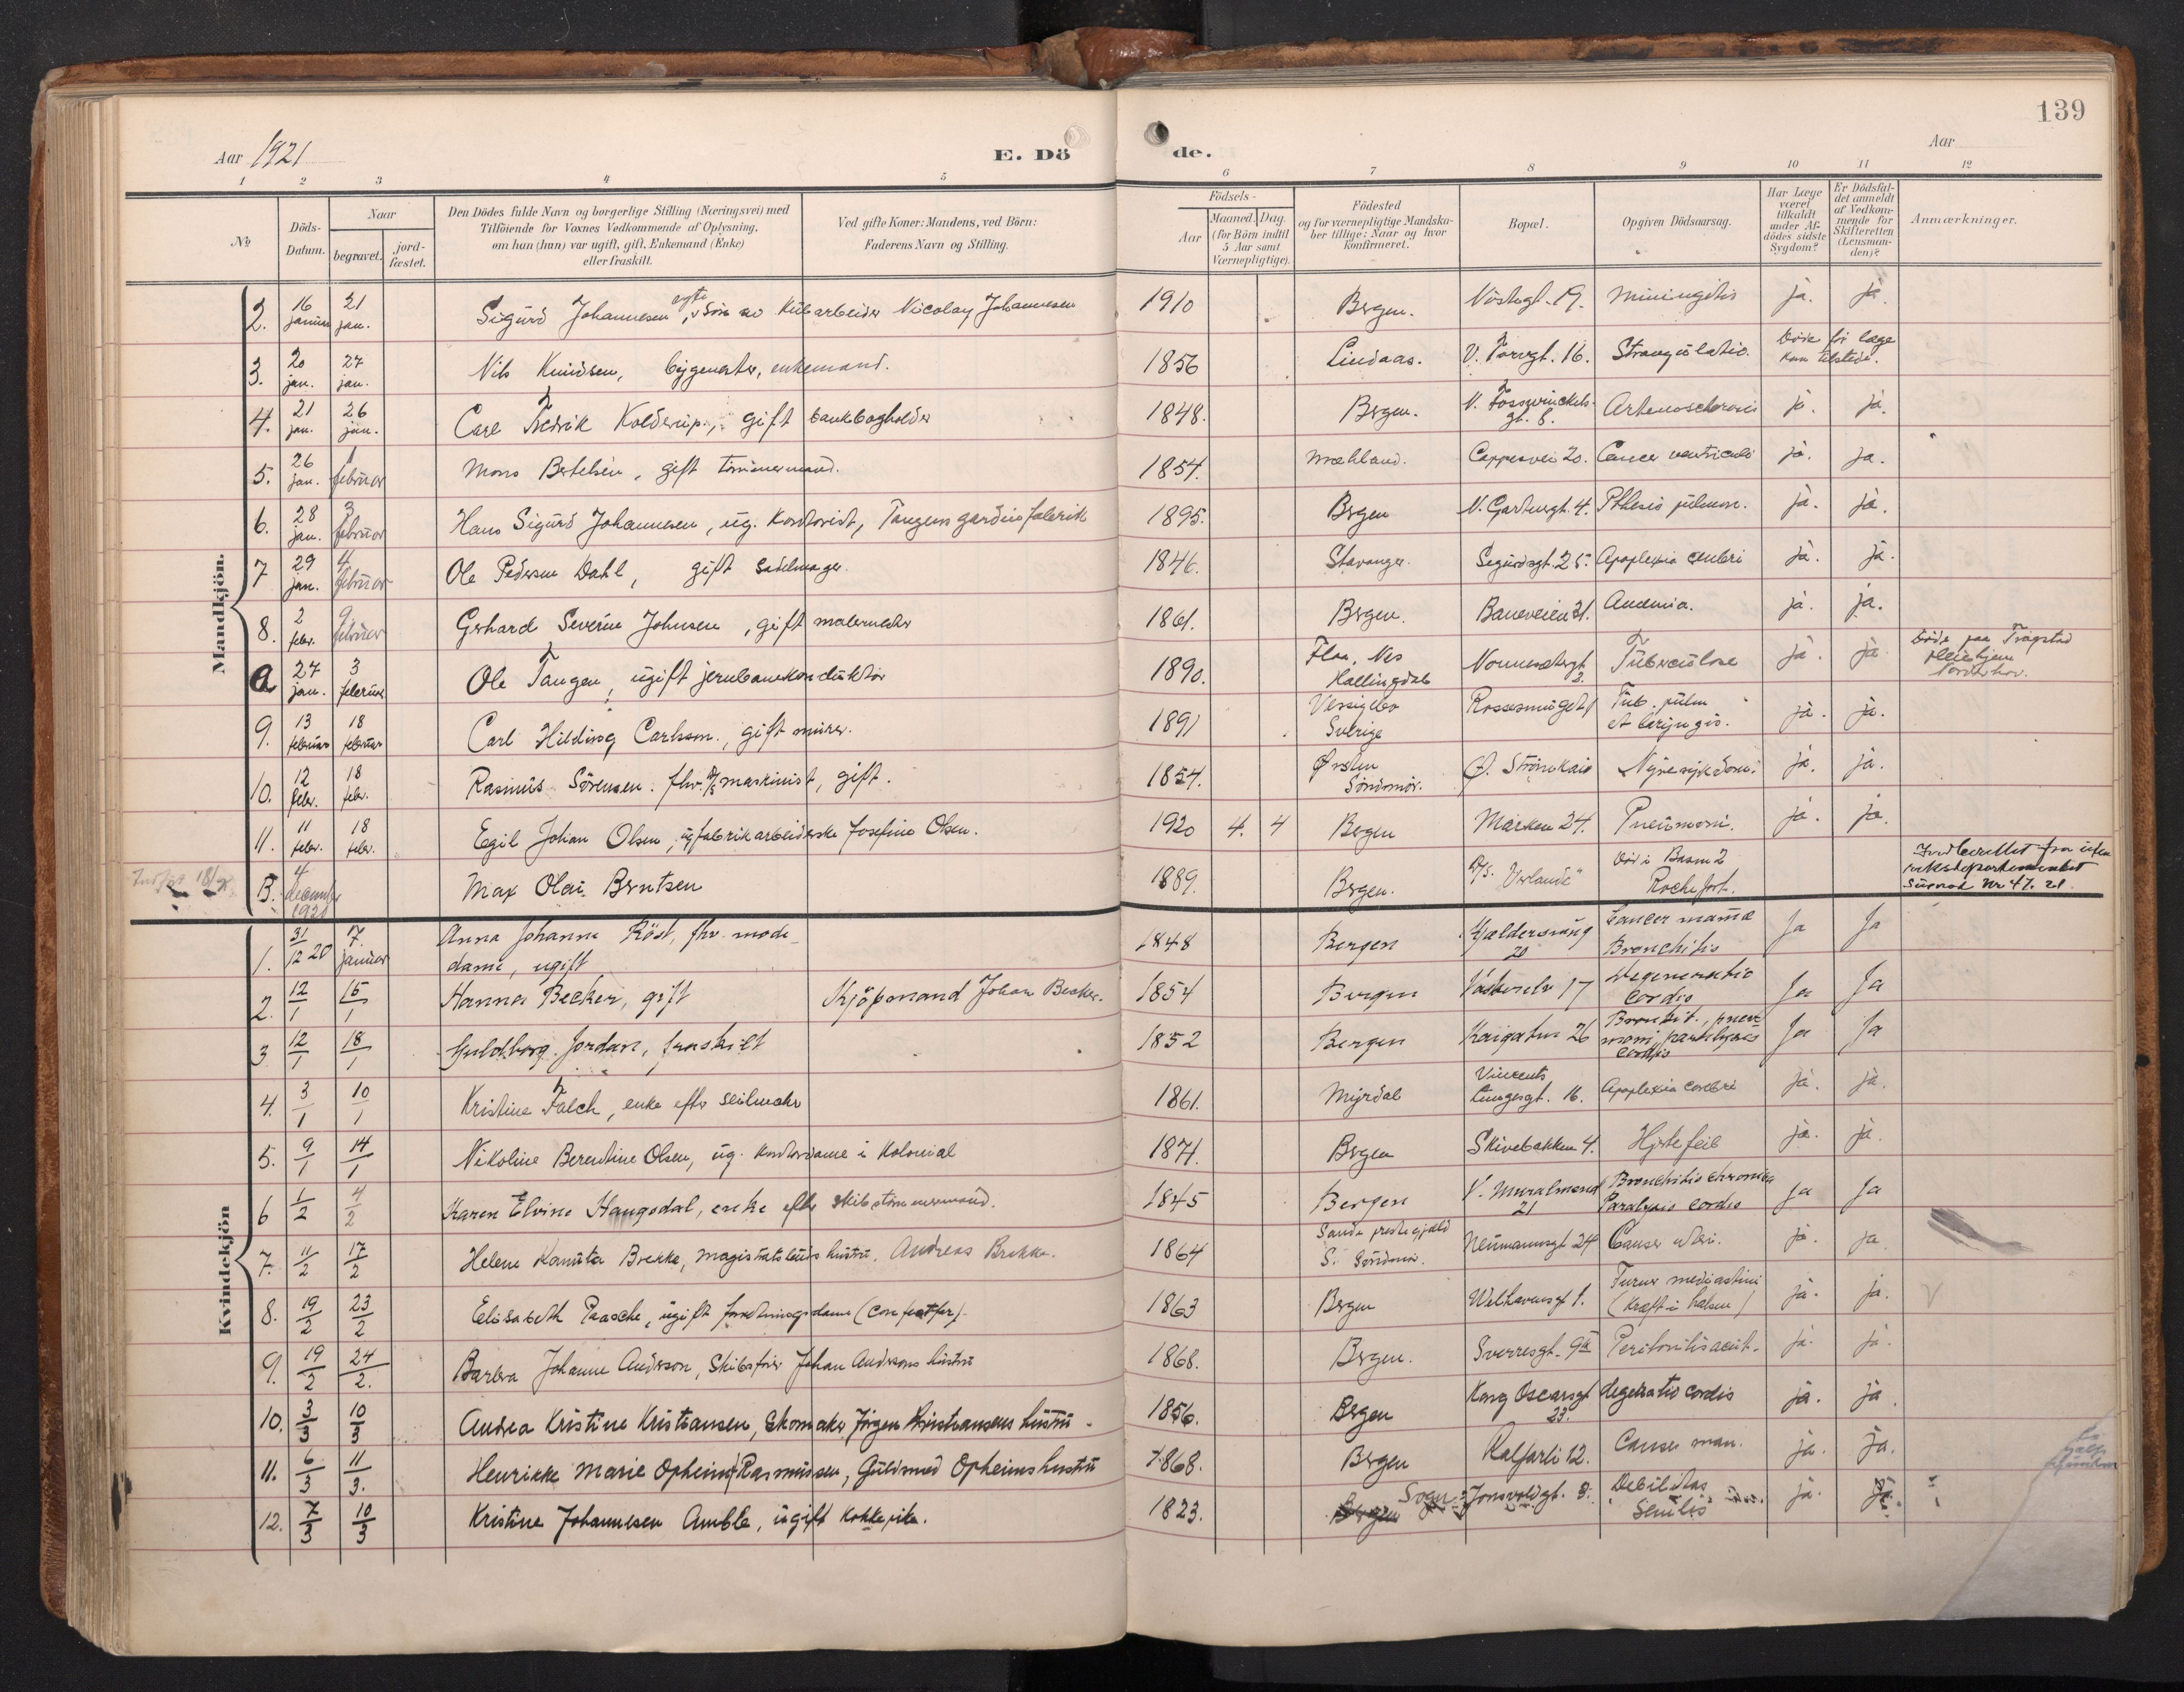 139
Aar 1921
E. Dö de.
Aar
1 2 3 4 5 6 7 8 9 10 11 12
No
Döds-Datum.
Naar
begravet.
jord-fæstet.
Den Dödes fulde Navn og borgerlige Stilling (Næringsvei) med
Tilföiende for Voxnes Vedkommende af Oplysning,
om han (hun) var ugift, gift, Enkemand (Enke)
eller fraskilt.
Ved gifte Koner: Mandens, ved Börn:
Faderens Navn og Stilling.
Födsels-
Aar
Maaned. Dag.
(for Börn indtil
5 Aar samt
Værnepligtige).
Födested
og for værnepligtige Mandska-
ber tillige: Naar og hvor
konfirmeret.
Bopæl.
Opgiven Dödsaarsag.
Har Læge
været
tilkaldt
under Af-
dödes sidste
Sygdom?
Er Dödsfal-
det anmeldt
af Vedkom-
mende for
Skifteretten
(Lensman-
den)?
Anmærkninger.
Mandkjön.
2. 16 januar 21 jan. Sigurd Johannesen, søn av Nicolay Johannesen 1910 Bergen. Nöstegt. 19. ja. ja.
3. 20 jan. 27 jan. Nils Knudsen, bygmester, enkemand. 1856 Lindaas. V. Torvgt. 16. Strangulatio. Döde för læge kom tilstede.
4. 21 jan. 26 jan. Carl Fredrik Kolderup, gift bankbogholder 1848. Bergen. gt. 8. ja. ja.
5. 26 jan. 1 februar Mons Bertelsen, gift tömmermand. 1854. Mæhland. Cappesvei 20. Cancer ventriculi ja. ja.
6. 28 jan. 3 februar Hans Sigurd Johannesen, ug. kontorist, 1895. Bergen Pthisis pulmon. ja. ja.
7 29 jan. 4 februar Ole Pedersen Dahl, gift sadelmager. 1846. Stavanger. Sigurdsgt. 25. Apoplexia cerebri ja. ja.
8. 2 febr. 9 februar Gerhard Severin Johnsen, gift malermester 1861. Bergen. Baneveien 21. Anemia. ja. ja.
a 27 jan. 3 februar Ole Tangen, ugift jernbanekonduktör 1890. Flaa, Nes Hallingdal Nonnesetergt 3. Tuberculose ja. ja. Döde paa pleiehjem Norderhov.
9. 13 februar 18 februar Carl Hilding Carlsson, gift murer. 1891 Vessigebo Sverige Tub. pulm et laryngis. ja. ja.
10. 12 febr. 18 febr. Rasmus Sörensen. fhv. maskinist, gift. 1854. Örsten Söndmör. Ö. Strömkai Nyresykdom. ja. ja.
11. 11 febr. 18 febr. Egil Johan Olsen, ug fabrikarbeiderske Josefine Olsen. 1920 4. 4 Bergen Marken 24. Pneumoni. ja. ja.
B. 4 december 1920 Max Olai Berntsen 1889. Bergen. Död i Bassin 2 Rochefort. Indberettet fra uten
riksdepartementet
Kvindekjön
1. 31/12 20 7. januar Anna Johanne Röst, fhv. mode-
dame, ugift 1848 Bergen 20 Cancer mamma Bronchitis Ja Ja
2. 12/1 15/1 Hanna Becker, gift Kjöpmand Johan Becker. 1854 Bergen 17 Degeneratio Cordis Ja Ja
3 12/1 18/1 Guldborg Jordan, fraskilt 1852 Bergen Kaigaten 26 Bronkit., pneumoni, paralysis cordis Ja Ja
4. 3/1 10/1 Kristine Falch, enke efter seilmaker 1861. Myrdal Vincents Lungesgt. 16. Apoplexia cerebri ja. ja.
5. 9/1 14/1 Nikoline Berentine Olsen, ug. kontordame i kolonial 1871. Bergen Skivebakken 4. Hjertefeil ja. ja.
6 1/2 4/2 Karen Elvine Haugsdal, enke efter skibstömmermand. 1845 Bergen V. Muralmend 21 Bronchitis chronica Paralysis cordis Ja Ja
7. 11/2 17/2 Helene Brekke, magistratsbuds hustru. Andreas Brekke. 1864 Sande prestegjæld S. Söndmör. Neumannsgt 24 Cancer uteri. ja. ja
8. 19/2 23/2 Elisabeth Paasche, ugift forretningsdame 1863 Bergen Welhavensgt 1. Tumor mediastini (Kræft i halsen) ja. ja.
9. 19/2 24/2. Barbra Johanne Anderson, Skibsförer Johan Andersons hustru 1868. Bergen. Sverresgt. 9a Peritonitis acut. ja. ja.
10. 3/3 10/3 Andrea Kristine Kristiansen, Skomaker Jörgen Kristiansens hustru. 1856. Bergen Kong Oscarsgt 23. degeneratio cordis ja. ja
11. 6/3 11/3. Henrikke Marie Opheim f. Rasmussen, Guldsmed Opheims hustru 1868. Bergen Kalfarli 12. Cancer mam. ja. ja.
12. 7/3 10/3 Kristine Johannesen Amble, ugift kokkepike. 1823. Bergen Sogn Jonsvoldgt. 3. Debilitas Senilis ja. ja.